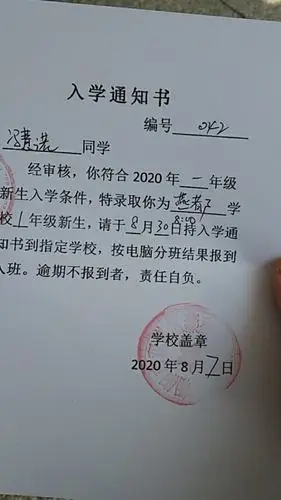 入学通知书
编号 042
同学
经审核，你符合2020年一年级
新生入学条件，特录取你为 学
校1年级新生，请于8月30日8:00持入学通
知书到指定学校，按电脑分班结果报到
入班。逾期不报到者，责任自负。
学校盖章
2020年8月7日